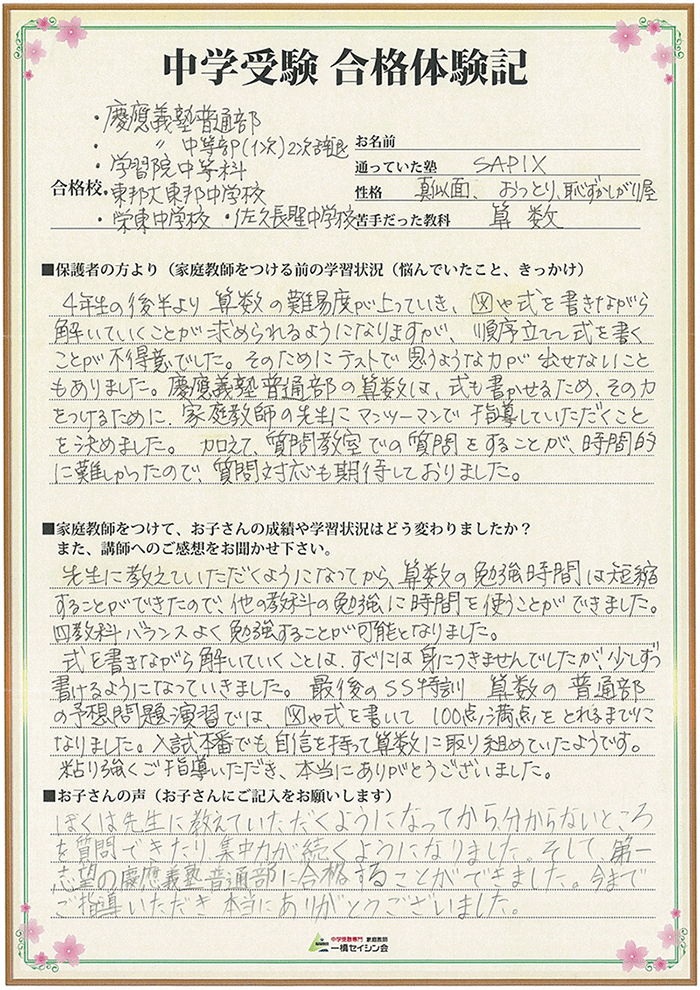 中学受験 合格体験記
合格校
・慶應義塾普通部
・ 〃 中等部(1次)2次辞退
・学習院中等科
・東邦大東邦中学校
・栄東中学校 ・佐久長聖中学校
お名前
通っていた塾 SAPIX
性格 真似面、おっとり、恥ずかしがり屋
苦手だった教科 算数
■保護者の方より（家庭教師をつける前の学習状況（悩んでいたこと、きっかけ）
4年生の後半より算数の難易度が上っていき、図や式を書きながら
解いていくことが求められるようになりますが、順序立てて式を書く
ことが不得意でした。そのためにテストで思うような力が出せないこと
もありました。慶應義塾普通部の算数は、式も書かせるため、その力
をつけるために、家庭教師の先生にマンツーマンで指導していただくこと
を決めました。加えて、質問教室での質問をすることが、時間的
に難しかったので、質問対応も期待しておりました。
■家庭教師をつけて、お子さんの成績や学習状況はどう変わりましたか？
また、講師へのご感想をお聞かせ下さい。
先生に教えていただくようになってから、算数の勉強時間は短縮
することができたので、他の教科の勉強に時間を使うことができました。
四教科バランスよく勉強することが可能となりました。
式を書きながら解いていくことは、すぐには身につきませんでしたが、少しずつ
書けるようになっていきました。最後のSS特訓 算数の普通部
の予想問題演習では、図や式を書いて100点満点をとれるまでに
なりました。入試本番でも自信を持って算数に取り組めていたようです。
粘り強くご指導いただき、本当にありがとうございました。
■お子さんの声（お子さんにご記入をお願いします）
ぼくは先生に教えていただくようになってから、分からないところ
を質問できたり、集中力が続くようになりました。そして、第一
志望の慶應義塾普通部に合格することができました。今まで
ご指導いただき本当にありがとうございました。
中学受験専門 家庭教師
一橋セイシン会